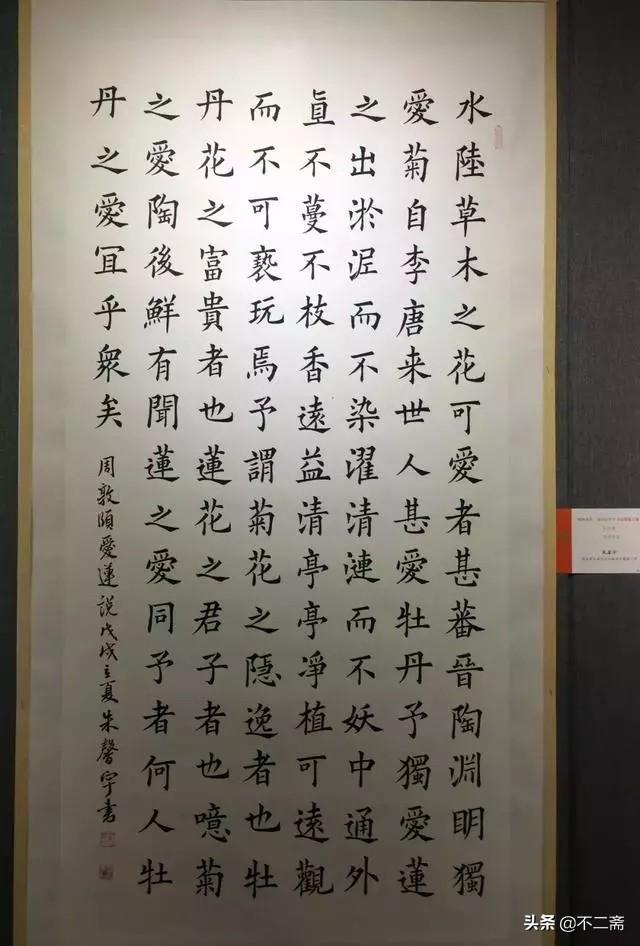 水陸草木之花可愛者甚蕃晉陶淵眀獨
愛菊自李唐来世人甚愛牡丹予獨愛蓮
之出淤泥而不染濯清漣而不妖中通外
直不蔓不枝香遠益清亭亭凈植可遠觀
而不可褻玩焉予謂菊花之隱逸者也牡
丹花之富貴者也蓮花之君子者也噫菊
之愛陶後鮮有聞蓮之愛同予者何人牡
丹之愛冝乎衆矣 周敦頤愛蓮説戊戌立夏朱馨宇書
头条 @不二斋